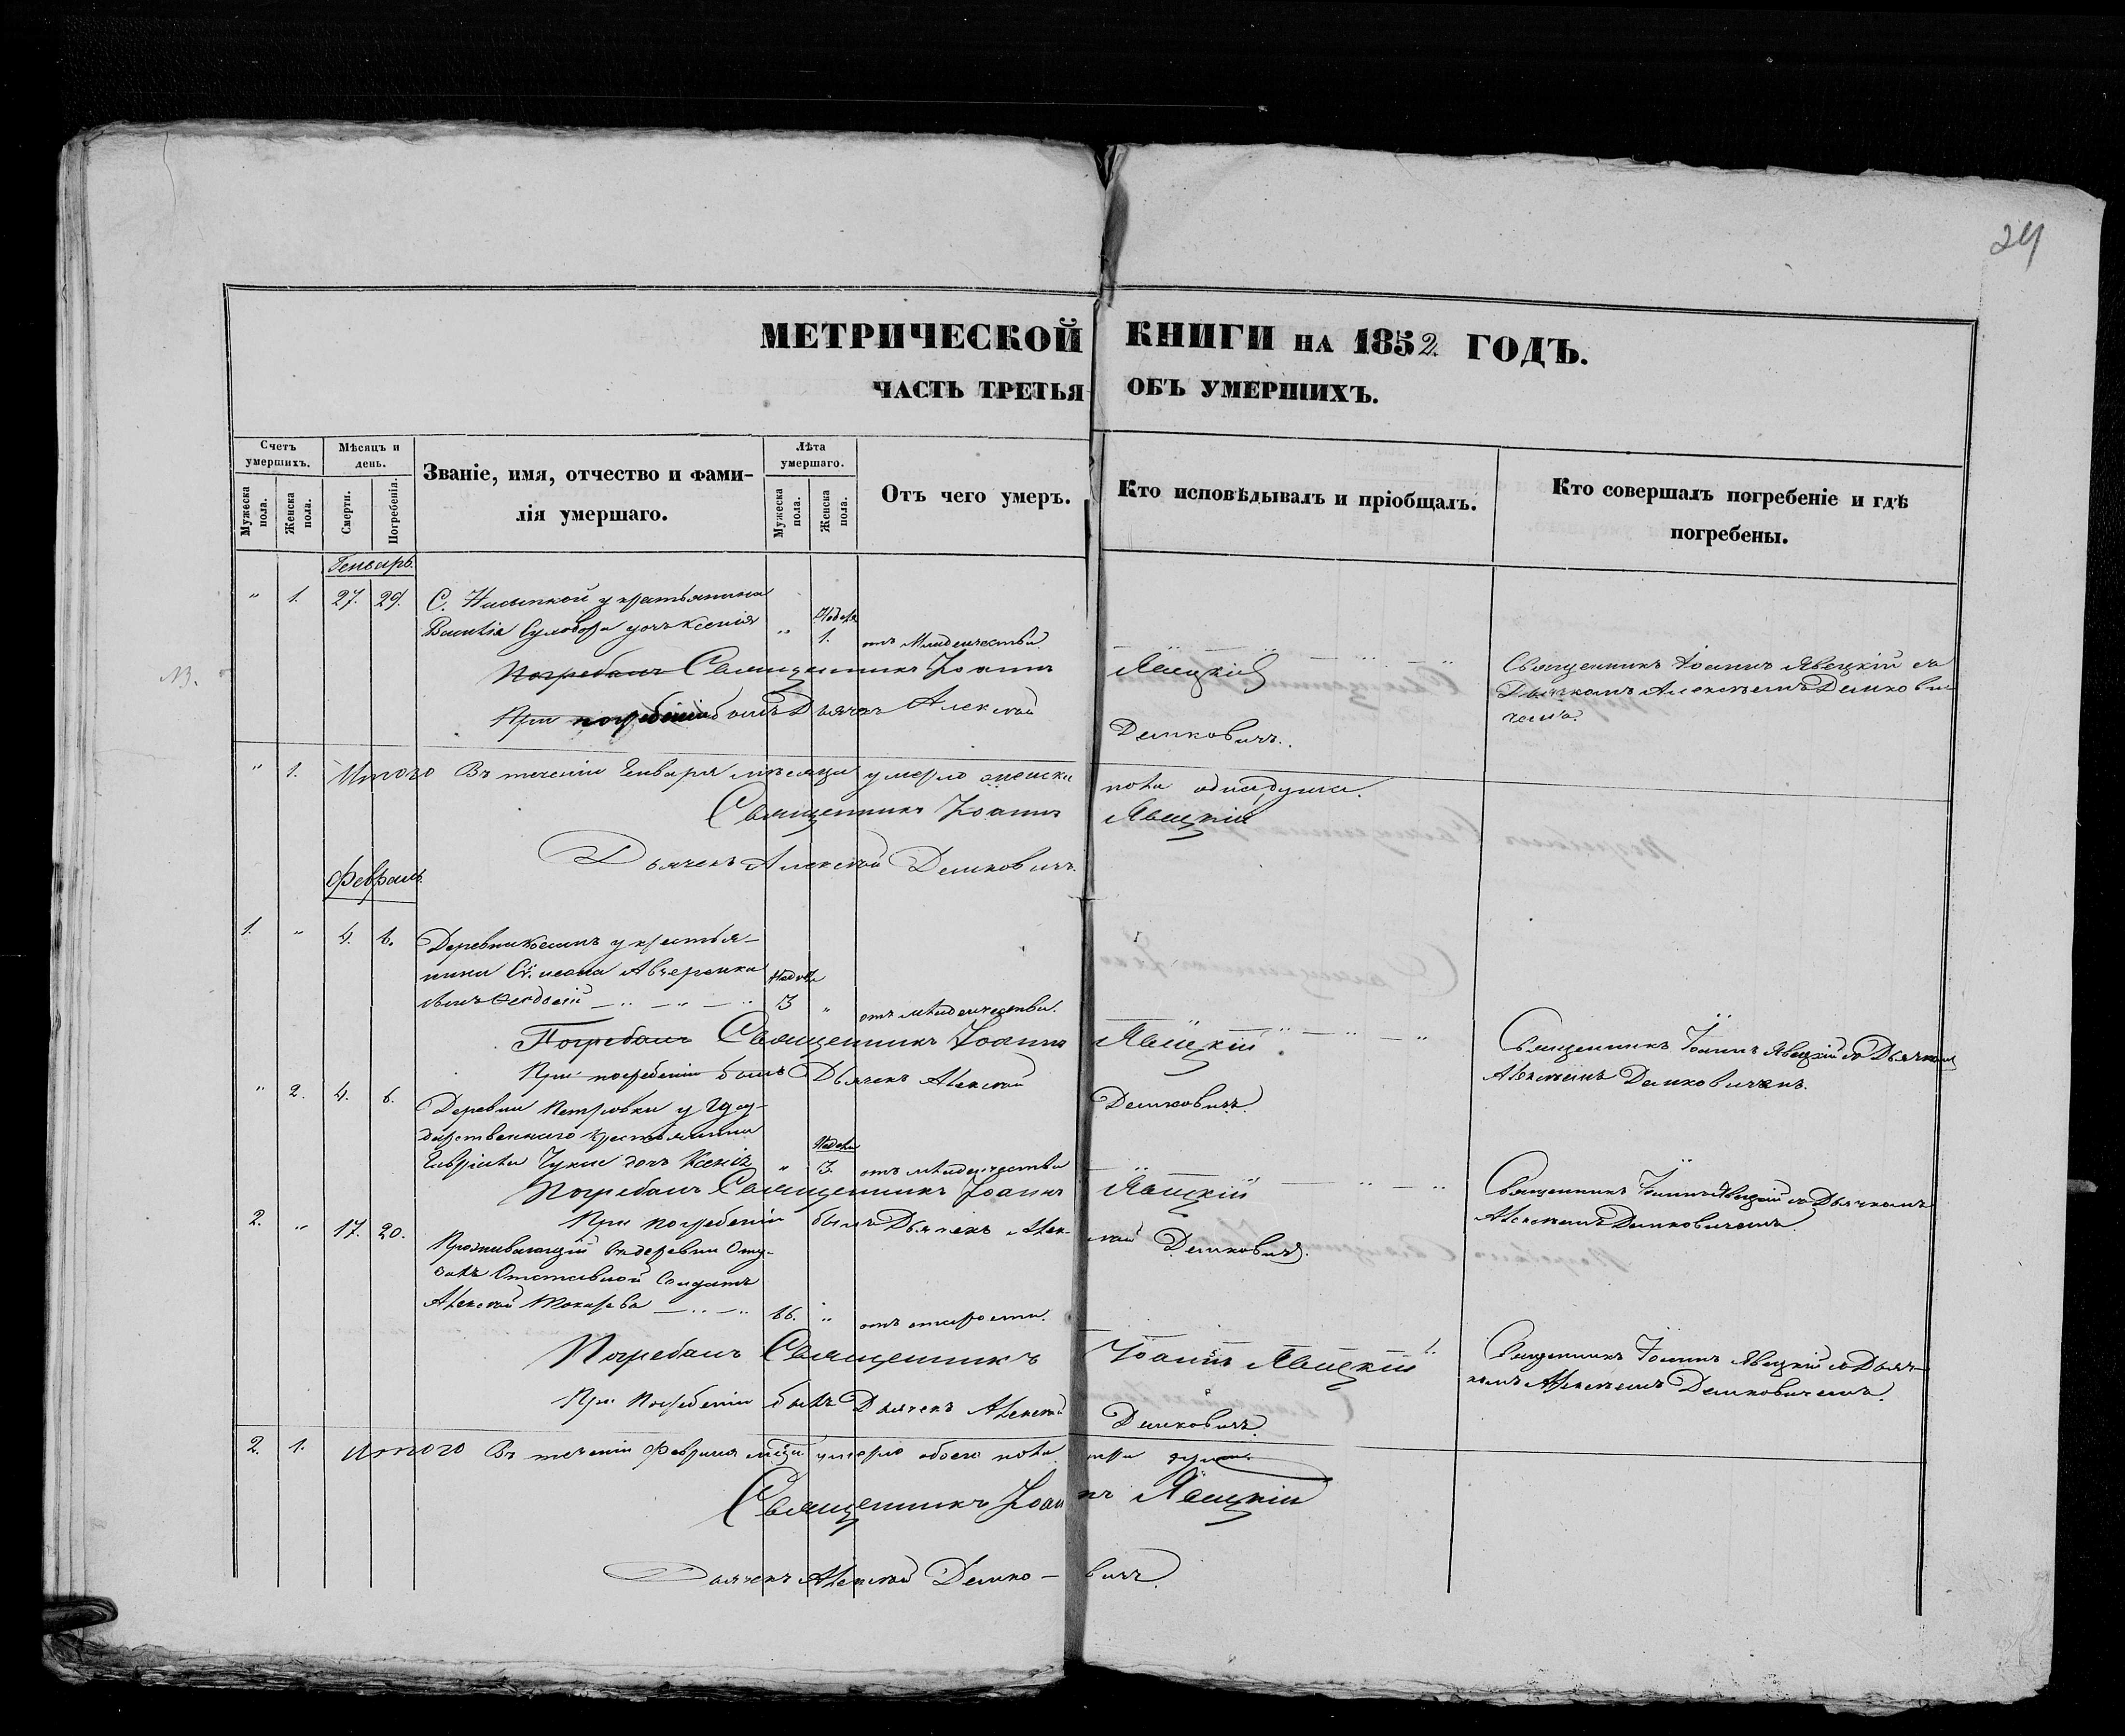 24
МЕТРИЧЕСКОЙ КНИГИ НА 1852 ГОДЪ.
ЧАСТЬ ТРЕТЬЯ ОБЪ УМЕРШИХЪ.
Счетъ умершихъ.
Мужеска пола.
Женска пола.
Мѣсяцъ и день.
Смерти.
Погребенія.
Званіе, имя, отчество и фамилія умершаго.
Лѣта умершаго.
Мужеска пола.
Женска пола.
Отъ чего умеръ.
Кто исповѣдывалъ и пріобщалъ.
Кто совершалъ погребеніе и гдѣ погребены.
Генварь.
" 1. 27. 29. С. у крестьянина
Василія дочь Ксенія " Недѣля 1. отъ младенчества
Погребалъ Священникъ Іоаннъ Явецкій
Священникъ Іоаннъ Явецкій съ
Дьячкомъ Алексѣемъ Демкови
чемъ.
При погребеніи былъ Дьячекъ Алексѣй Демковичъ.
" 1. Итого Въ теченіи Генваря мѣсяца умерло женска пола одна душа.
Священникъ Іоаннъ Явецкій
Дьячекъ Алексѣй Демковичъ.
Февраль.
1. " 4. 6. Деревни у крестья-
нина Аверенка
сынъ Недѣли 3 " отъ младенчества.
Погребалъ Священникъ Іоаннъ Явецкій
Священникъ Іоаннъ Явецкій съ Дьячкомъ
Алексѣемъ Демковичемъ.
При погребеніи былъ Дьячекъ Алексѣй Демковичъ.
" 2. 4. 6. Деревни Петровки у Госу-
дарственнаго крестьянина
Гавріила дочь Ксенія " Недѣли 3. отъ младенчества
Погребалъ Священникъ Іоаннъ Явецкій
Священникъ Іоаннъ Явецкій съ Дьячкомъ
Алексѣемъ Демковичемъ
При погребеніи былъ Дьячекъ Алексѣй Демковичъ.
2. " 17. 20. Проживающій въ деревни
Отставной Солдатъ
Алексѣй Токарева 86. " отъ старости.
Погребалъ Священникъ Іоаннъ Явецкій
Священникъ Іоаннъ Явецкій съ Дьяч-
комъ Алексѣемъ Демковичемъ.
При погребеніи былъ Дьячекъ Алексѣй Демковичъ.
2. 1. Итого Въ теченіи Февраля мѣсца умерло обоего пола три души.
Священникъ Іоаннъ Явецкій
Дьячекъ Алексѣй Демко-вичъ.